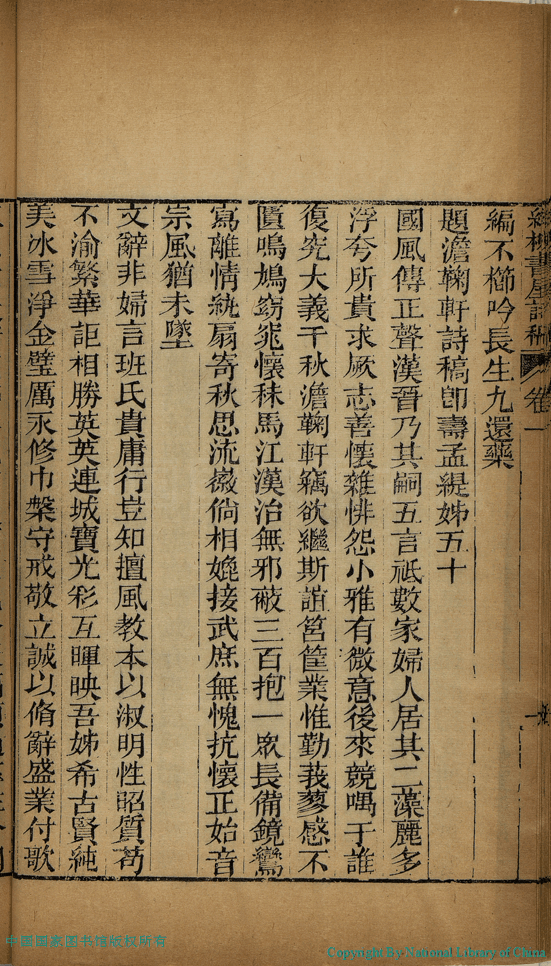 編不櫛吟長生九還藥
題澹鞠軒詩稿卽壽孟緹姊五十
國風傳正聲漢晉乃其嗣五言祗數家婦人居其二藻麗多
浮夸所貴求厥志善懷雜悱怨小雅有微意後來競喁于誰
復究大義千秋澹鞠軒竊欲繼斯誼筥筐業惟勤莪蓼感不
匱鳴鳩窈窕懷秣馬江漢治無邪蔽三百抱一眾長備鏡鸞
寫離情紈扇寄秋思流徽倘相嬎接武庶無愧抗懷正始音
宗風猶未墜
文辭非婦言班氏貴庸行豈知擅風教本以淑明性昭質苟
不渝繁華詎相勝英英連城寶光彩互暉映吾姊希古賢純
美冰雪淨金璧厲永修巾槃守戒敬立誠以脩辭盛業付歌
卷一
中国国家图书馆版权所有
Copyright By National Library of China